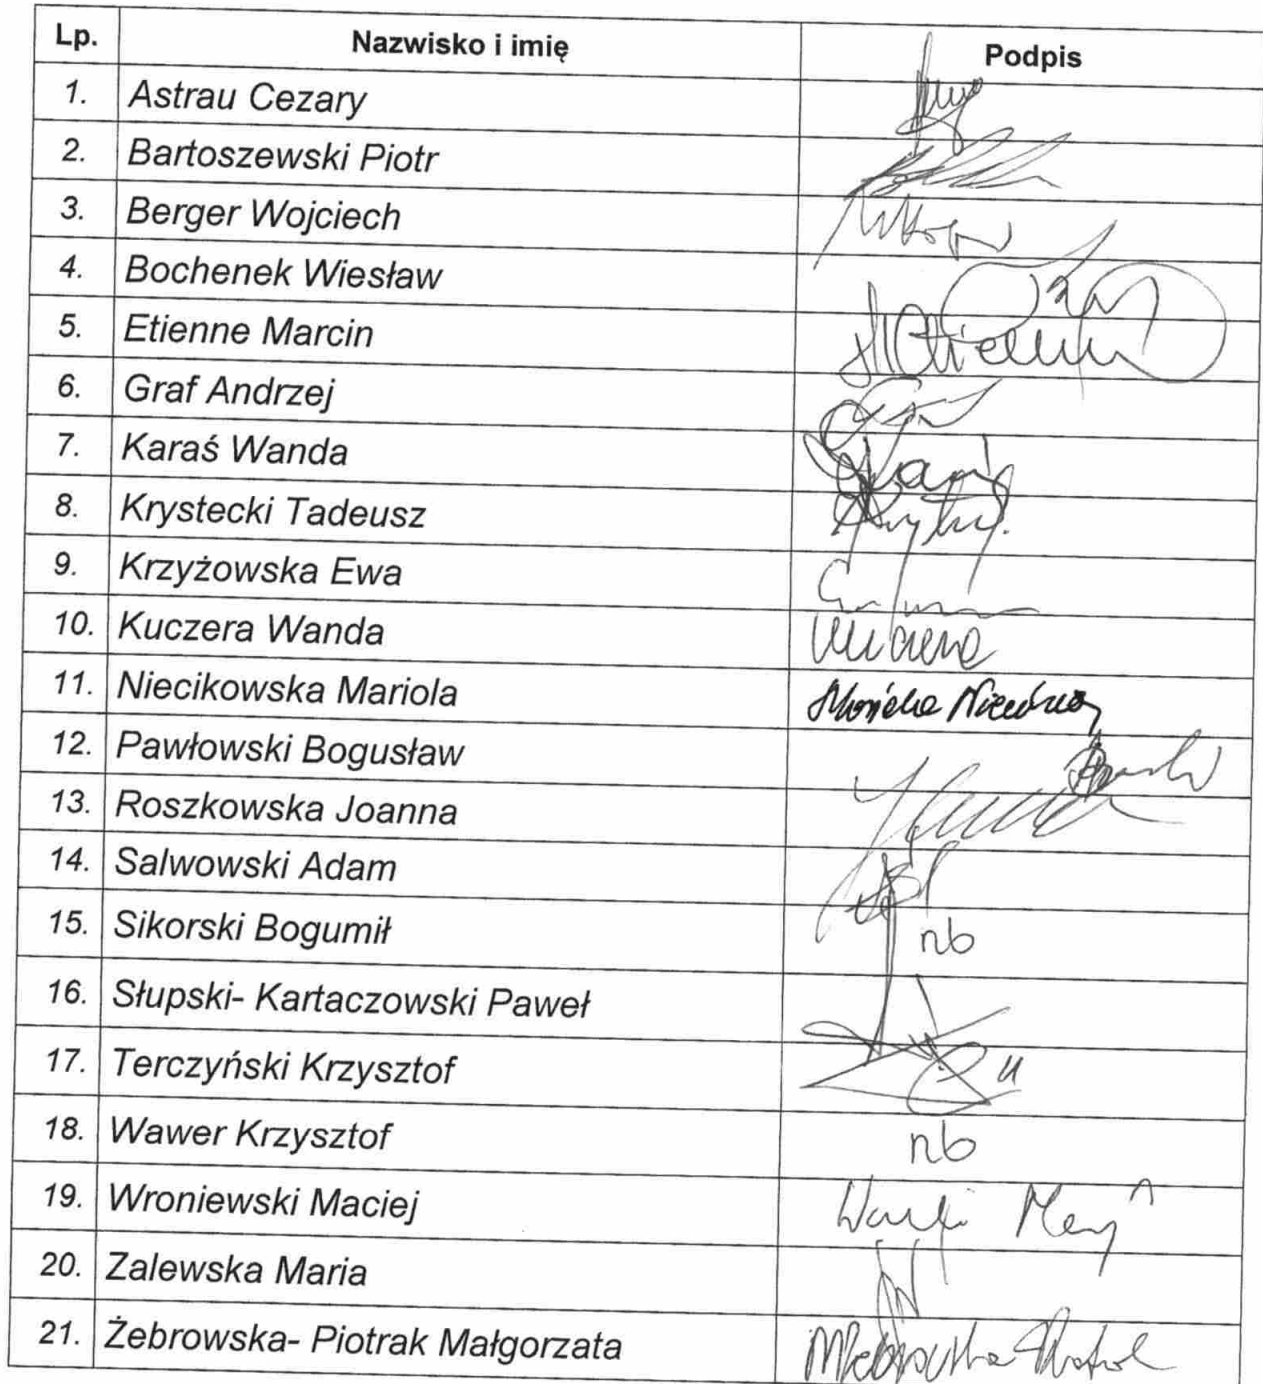 Lp. Nazwisko i imię Podpis
1. Astrau Cezary
2. Bartoszewski Piotr
3. Berger Wojciech
4. Bochenek Wiesław
5. Etienne Marcin
6. Graf Andrzej
7. Karaś Wanda
8. Krystecki Tadeusz
9. Krzyżowska Ewa
10. Kuczera Wanda
11. Niecikowska Mariola
12. Pawłowski Bogusław
13. Roszkowska Joanna
14. Salwowski Adam
15. Sikorski Bogumił nb
16. Słupski- Kartaczowski Paweł
17. Terczyński Krzysztof
18. Wawer Krzysztof nb
19. Wroniewski Maciej
20. Zalewska Maria
21. Żebrowska- Piotrak Małgorzata